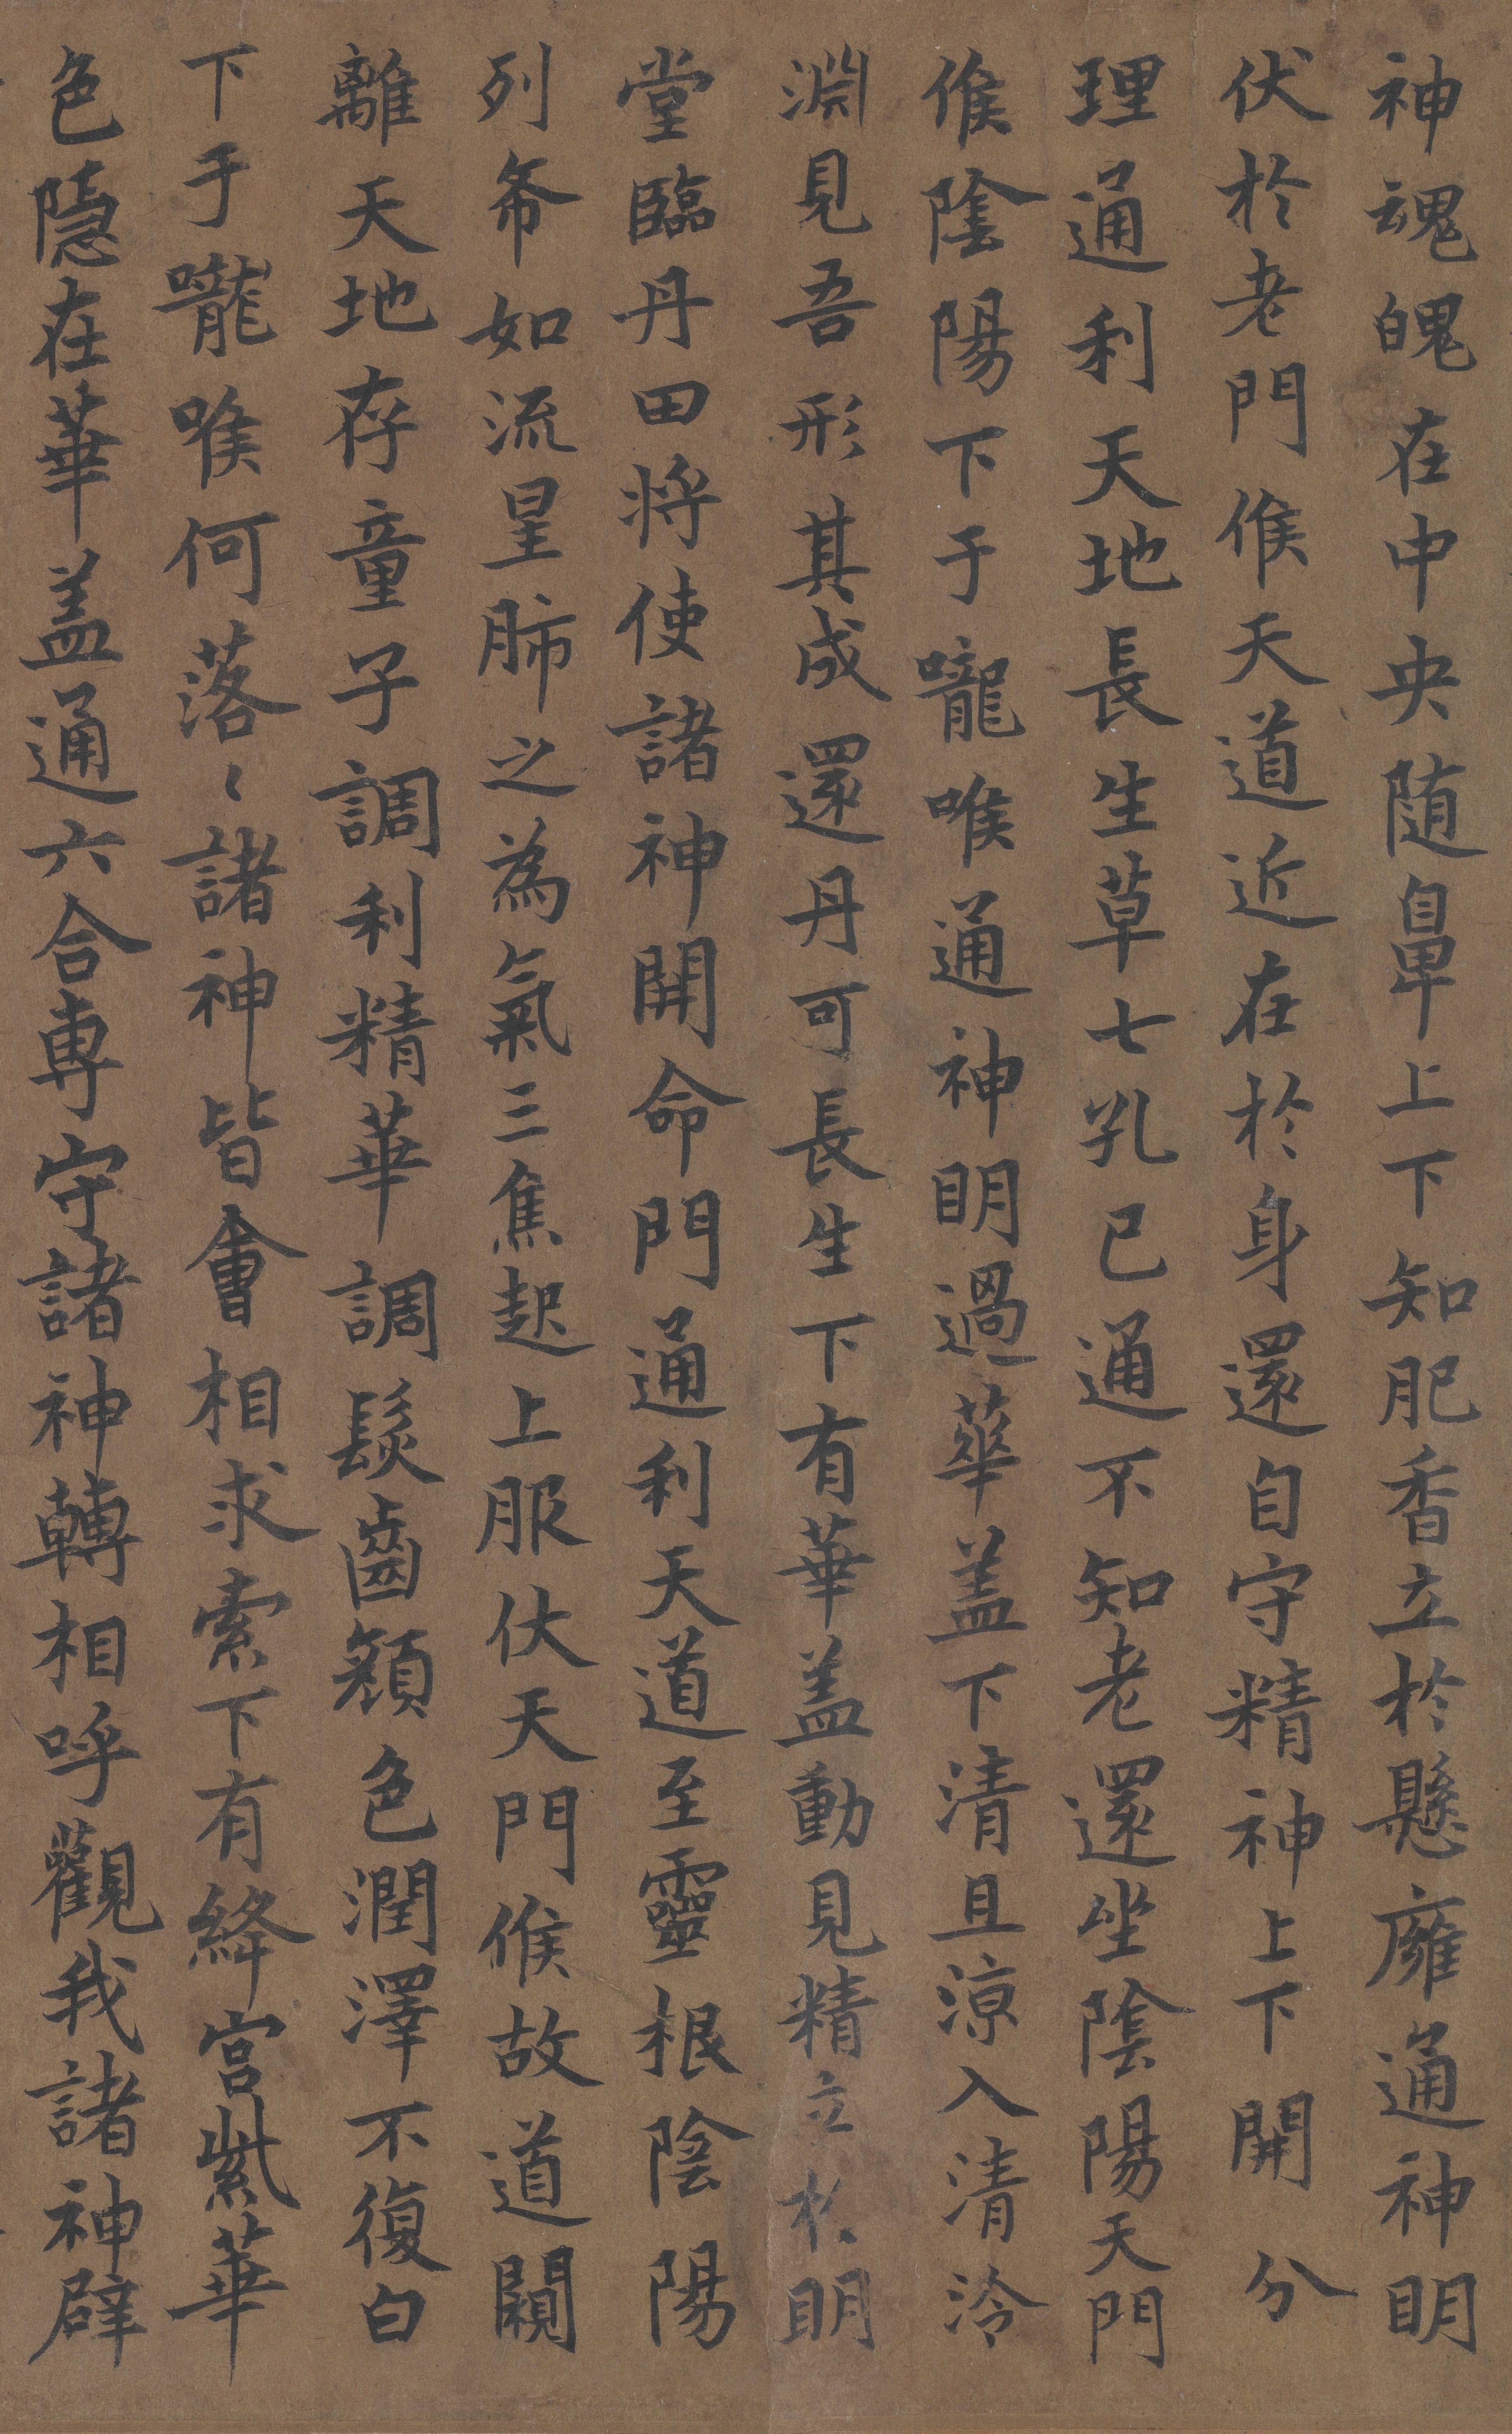 神魂魄在中央随鼻上下知肥香立於懸廱通神明
伏於老門候天道近在於身還自守精神上下開分
理通利天地長生草七孔已通不知老還坐陰陽天門
候陰陽下于嚨喉通神明過華盖下清且涼入清泠
淵見吾形其成還丹可長生下有華盖動見精立於明
堂臨丹田将使諸神開命門通利天道至靈根陰陽
列布如流星肺之為氣三焦起上服伏天門候故道闚
離天地存童子調利精華調髮齒顏色潤澤不復白
下于嚨喉何落〻諸神皆會相求索下有絳宮紫華
色隱在華盖通六合専守諸神轉相呼觀我諸神辟